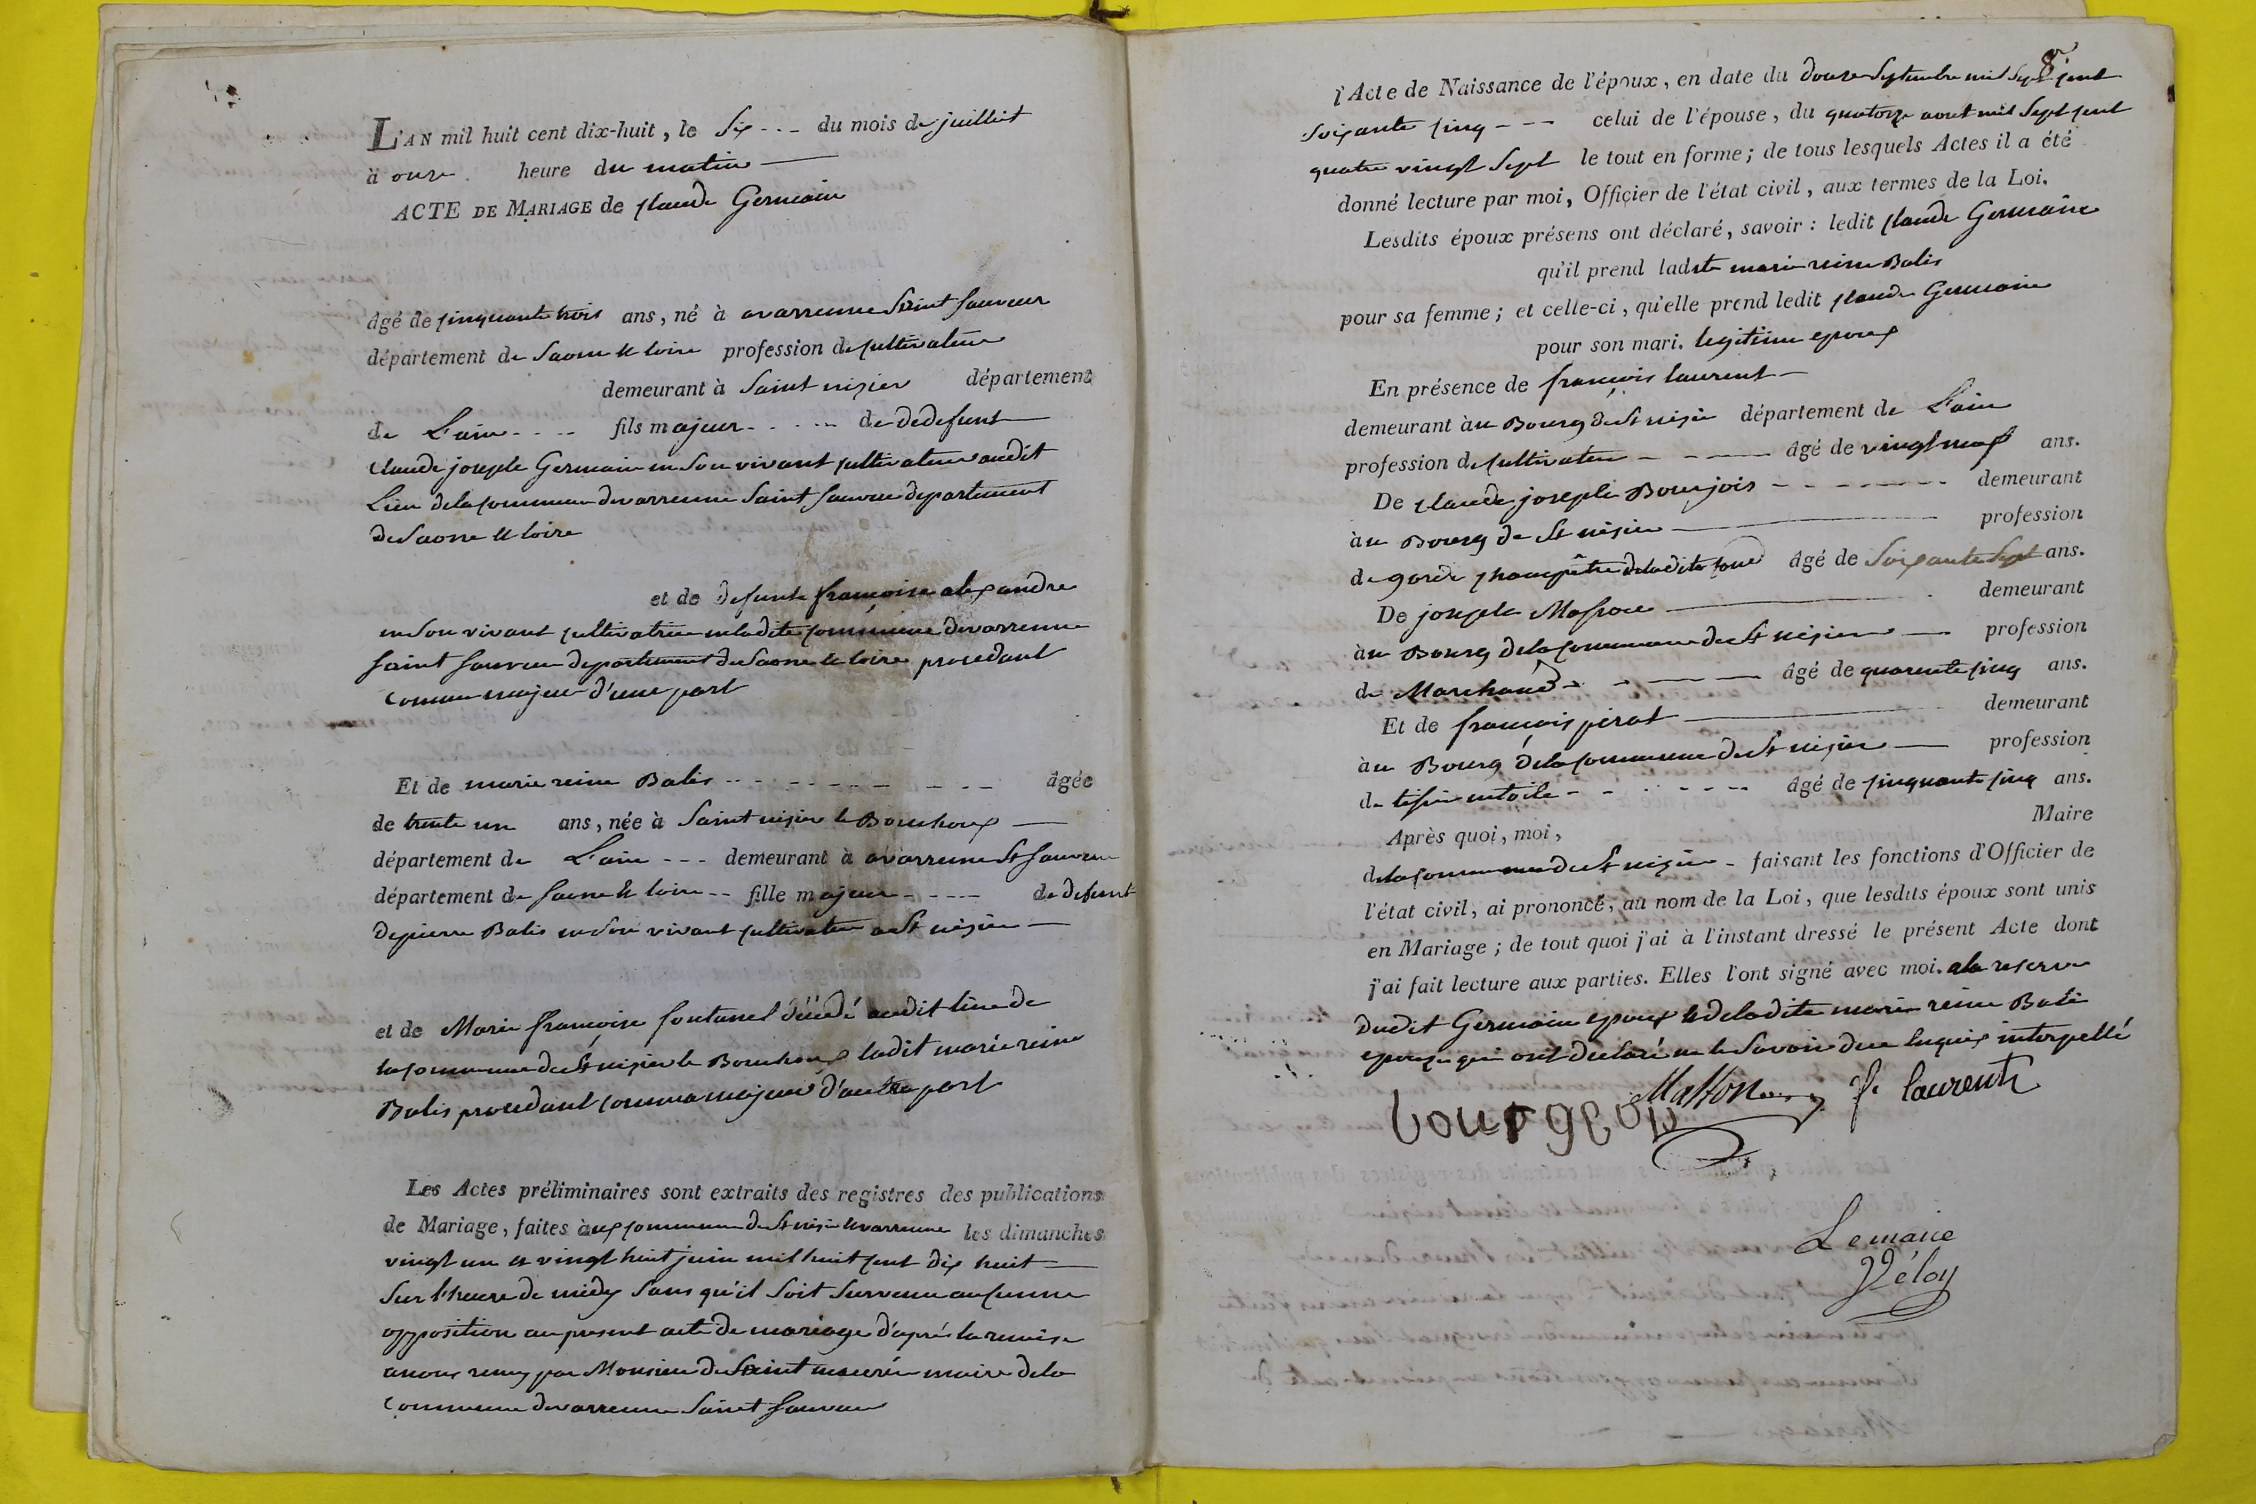 L'AN mil huit cent dix-huit, le Six --- du mois de juillet
à onze heure du matin
ACTE DE MARIAGE de claude Germain
âgé de cinquante trois ans, né à avarrenne Saint Sauveur
département de Saone et loire profession de cultivateur
demeurant à Saint nizier département
de L'ain ---- fils majeur ----- de dedefunt
claude joseph Germain en Son vivant cultivateur audit
Lieu de la commune de varrenne Saint Sauveur departement
de Saone et loire
et de defunte françoise alexandre
en Son vivant cultivatrice en ladite commune de varrenne
Saint Sauveur departement de Saone et loire procedant
comme majeur d'une part
Et de marie reine Balis -------- âgée
de trente un ans, née à Saint nizier le Bouchoux
département de L'ain --- demeurant à avarrenne St Sauveur
département de Saone et loire -- fille majeure ---- de defunt
de pierre Balis en Son vivant cultivateur a St nizier
et de Marie françoise fontanel décédé audit lieu de
la commune de St nizier le Bouchoux ladit marie reine
Balis procedant comme majeur d'autre part
Les Actes préliminaires sont extraits des registres des publications
de Mariage, faites aux commune de St nizier et varrenne les dimanches
vingt un et vingt huit juin mil huit cent dix huit
Sur l'heure de midy Sans qu'il Soit Survenu aucunne
opposition au present acte de mariage d'après la remise
a nous par Monsieur de Saint maire de la
commune de varrenne Saint Sauveur
8
l'Acte de Naissance de l'époux, en date du douze Septembre mil Sept cent
Soixante cinq --- celui de l'épouse, du quatorze aout mil Sept cent
quatre vingt Sept le tout en forme; de tous lesquels Actes il a été
donné lecture par moi, Officier de l'état civil, aux termes de la Loi.
Lesdits époux présens ont déclaré, savoir : ledit claude Germain
qu'il prend ladite marie reine Balis
pour sa femme; et celle-ci, qu'elle prend ledit claude Germain
pour son mari. legitime epoux
En présence de françois laurent
demeurant à au Bourg de St nizier département de L'ain
profession de cultivateur ---- âgé de vingt neuf ans.
De claude joseph Bourjois -------- demeurant
à au Bourg de St nizier profession
de garde champêtre de la dite âgé de Soixante Sept ans.
De joseph demeurant
à au Bourg de la commune de St nizier profession
de Marchand ---- âgé de quarente cinq ans.
Et de françois pirat demeurant
à au Bourg de la commune de St nizier profession
de tisier en toile ------ âgé de cinquante cinq ans.
Après quoi, moi, Maire
de la commune de St nizier - faisant les fonctions d'Officier de
l'état civil, ai prononcé, au nom de la Loi, que lesdits époux sont unis
en Mariage; de tout quoi j'ai à l'instant dressé le présent Acte dont
j'ai fait lecture aux parties. Elles l'ont signé avec moi. a la reserve
dudit Germain epoux et de la dite marie reine Balis
epouse qui ont declaré ne le Savoir interpellé
laurent
bourgeois
Le maire
Véloy